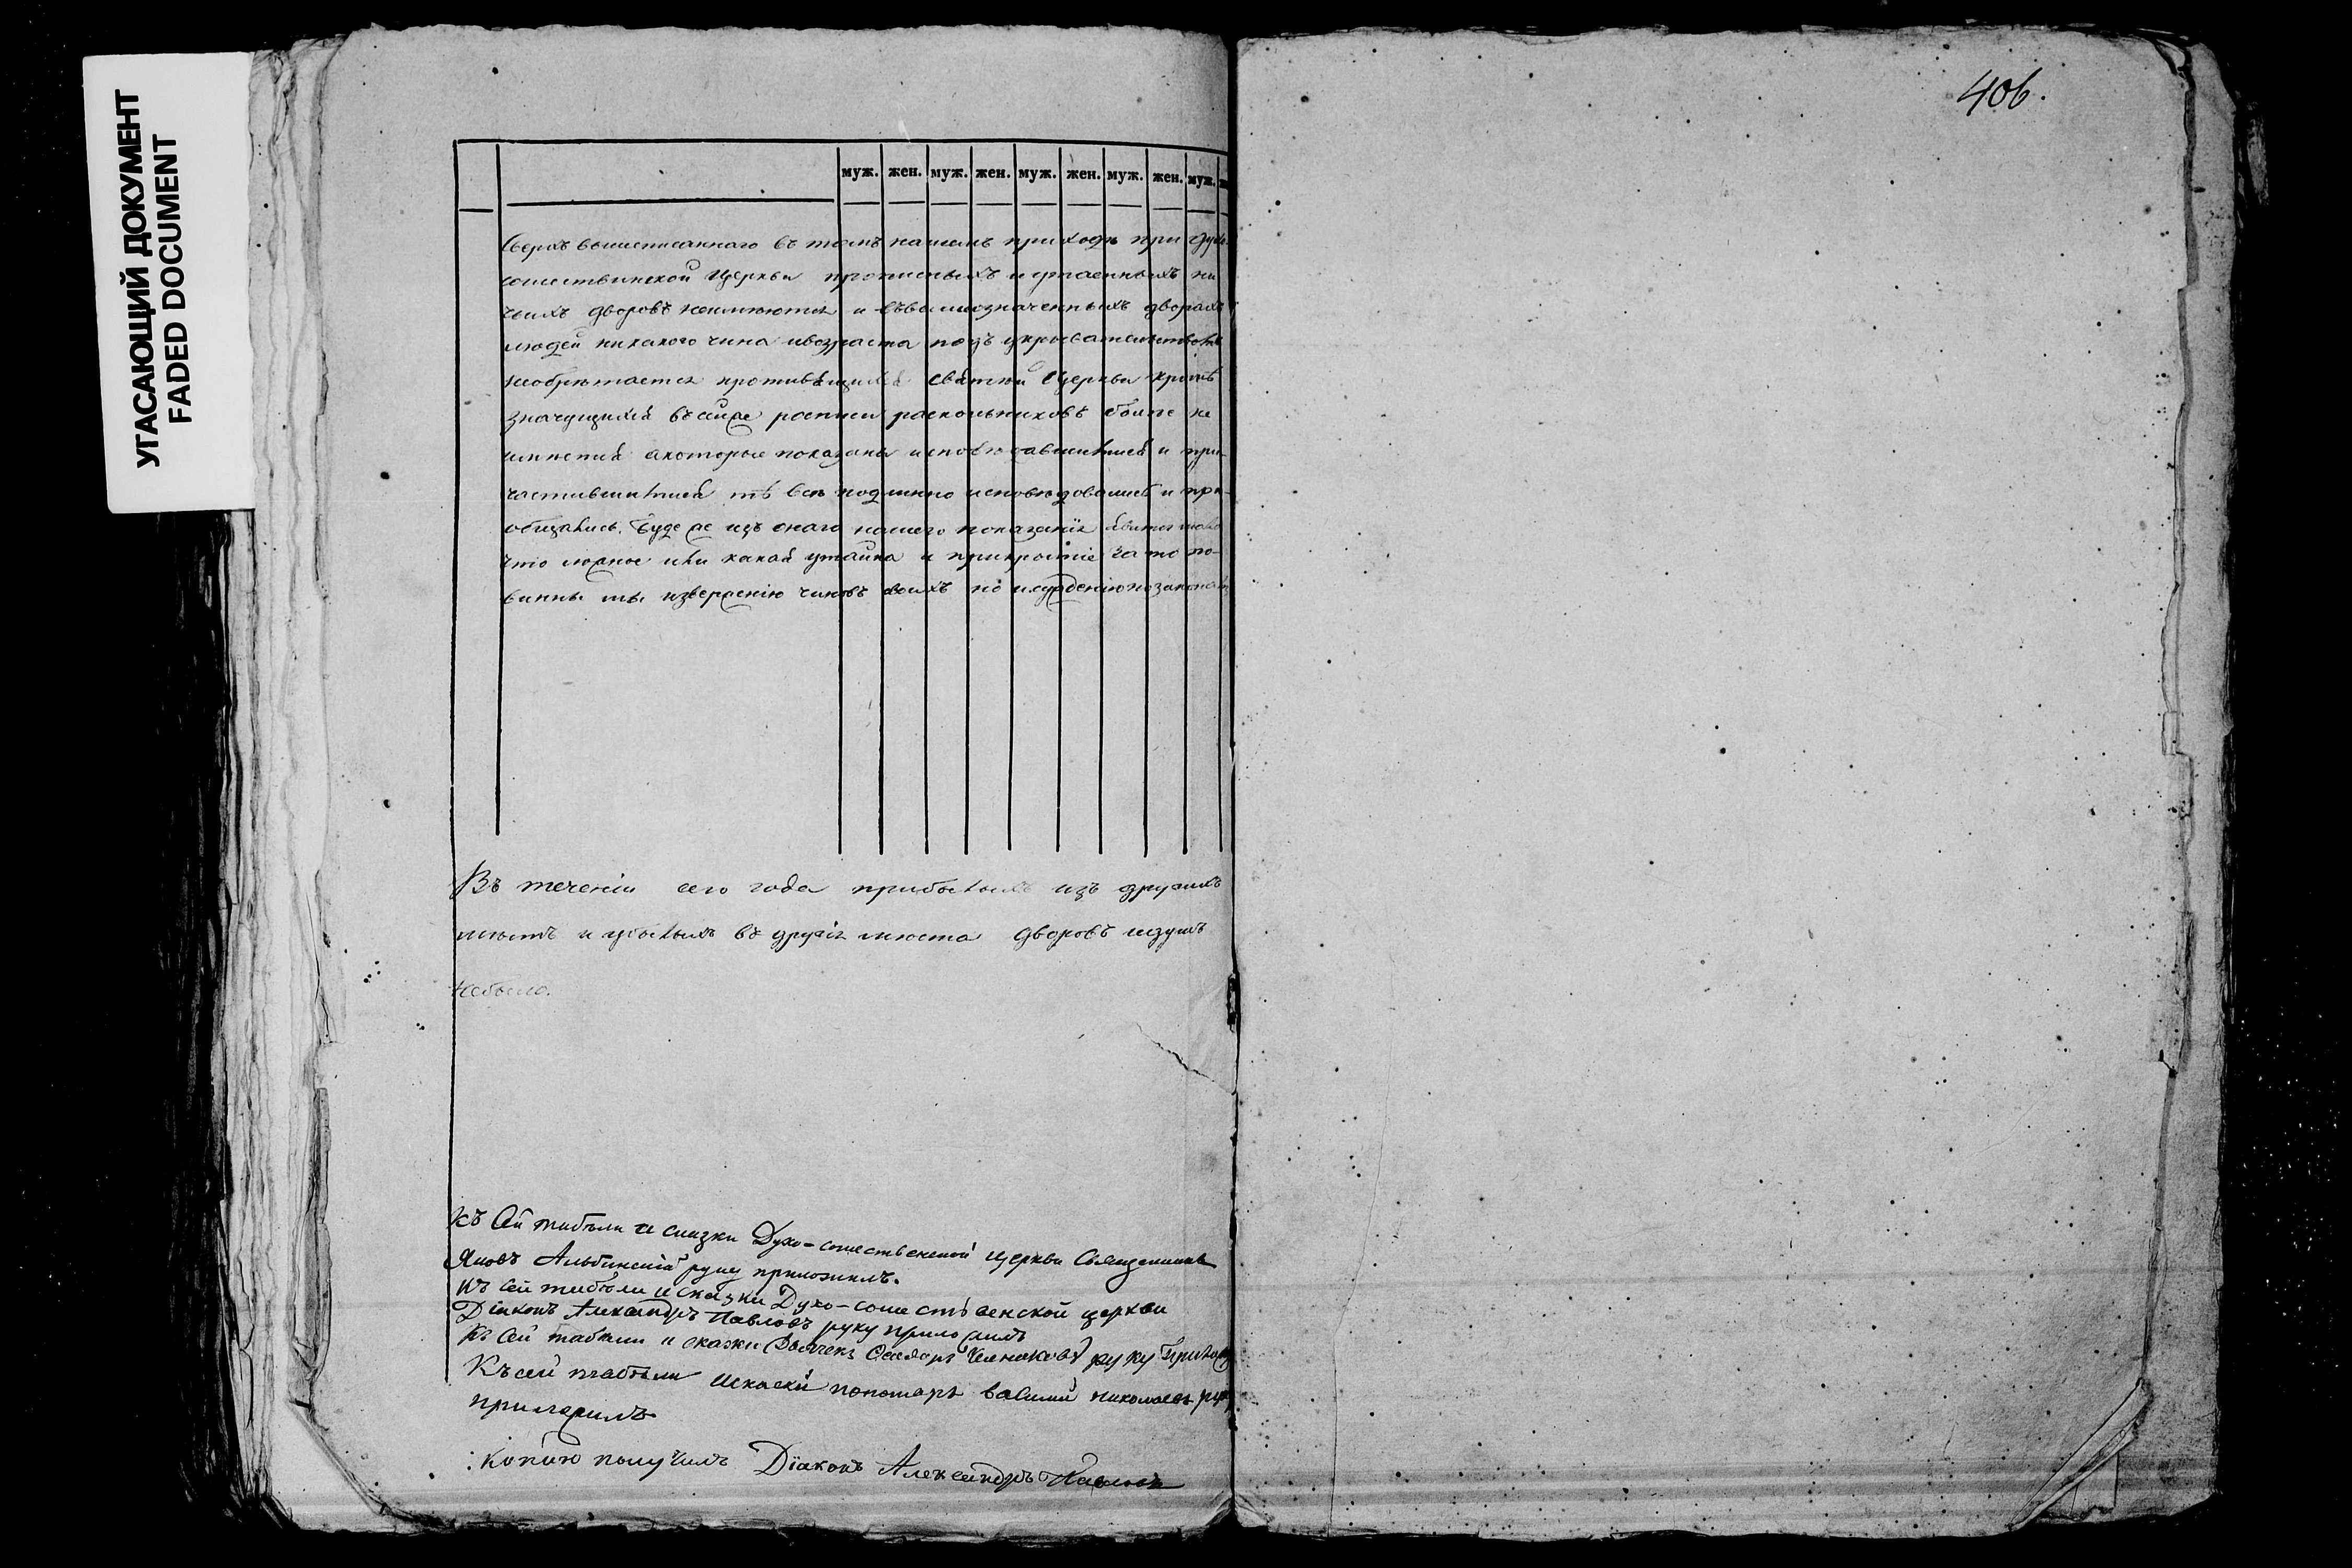 УГАСАЮЩИЙ ДОКУМЕНТ
FADED DOCUMENT
406.
муж. жен. муж. жен. муж. жен. муж. жен. муж.
Сверхъ вышеписаннаго въ томъ нашемъ приходѣ при Духо
сошественской Церкви прописныхъ и утаенныхъ ни
чьихъ дворовъ неимѣются и въвышеозначенныхъ дворахъ
людей никакого чина ивозраста подъ укрывательствомъ
необрѣтается противящихся святѣй Церкви кромѣ
значущихся въсей же росписи раскольниковъ болѣе не
имѣется а которые показаны исповѣдавшимися и при-
частившимися тѣ всѣ подлинно исповѣдовались и прі-
общались. Буде же изъ онаго нашего показанія явится
что ложное или какая утайка и прикрытіе за то по-
винны мы изверженію чиновъ своихъ по изсужденію
Въ теченіи сего года прибылыхъ изъ другихъ
мѣстъ и убылыхъ въ другія мѣста дворовъ идушъ
небыло.
Къ сей табѣли и сказки Духо-сошественской церкви Священникъ
Яковъ Альбинскій руку приложилъ.
Къ сей табѣли и сказки Духо-сошественской церкви
Діаконъ Александръ Павловъ руку приложилъ
Къ сей табѣли и скаски Дьячекъ руку
Къ сей табѣли искаски пономарь николаевъ
приложилъ
: Копию получилъ Діаконъ Александръ Павловъ